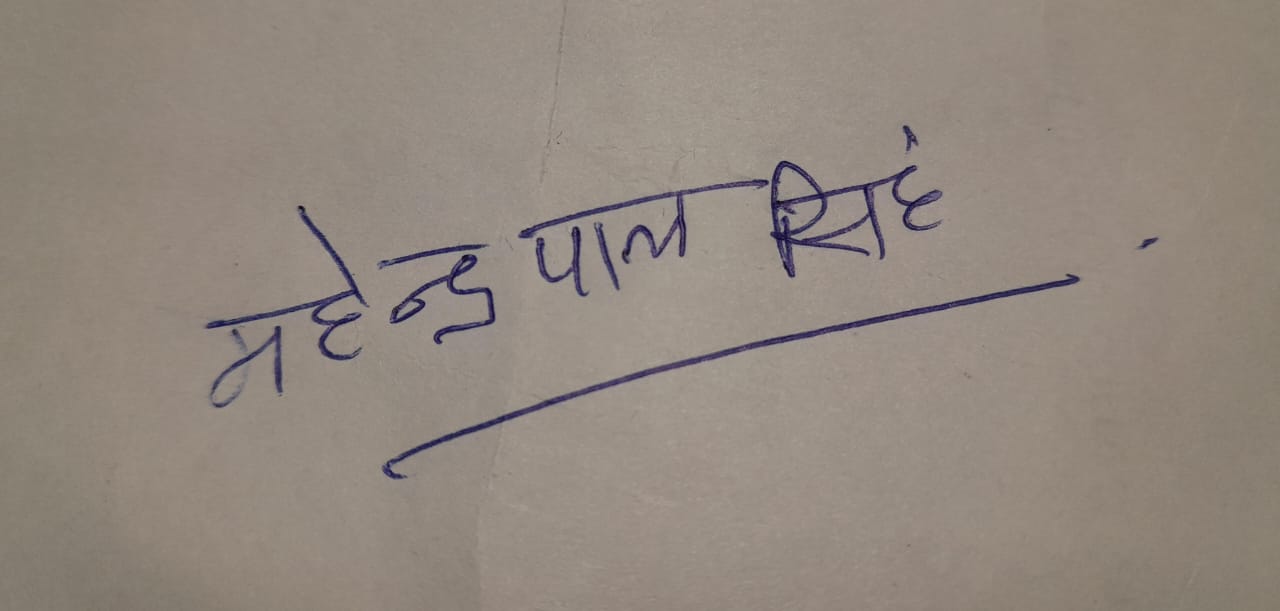 महेन्द्र पाल सिहं